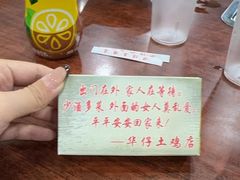 出门在外 家人在等待;
少酒多菜 外面的女人莫乱爱,
平平安安回家来!
——华仔土鸡店